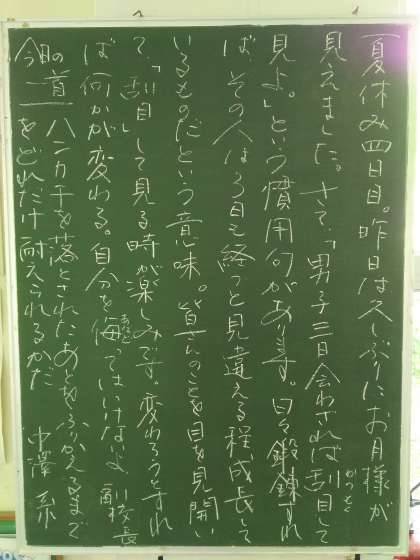 夏休み四日目。昨日は久しぶりにお月様が
見えました。さて、「男子三日会わざれば刮目して
見よ。」という慣用句があります。日々鍛錬すれ
ば、その人は3日も経つと見違える程成長して
いるものだという意味。皆さんのことを目を見開い
て、「刮目」して見る時が楽しみです。変わろうとすれ
ば何かが変わる。自分を侮ってはいけないよ 副校長
今日の一首 ハンカチを落とされたあとをふりかえるまで
をどれだけ耐えられるかだ 中澤系